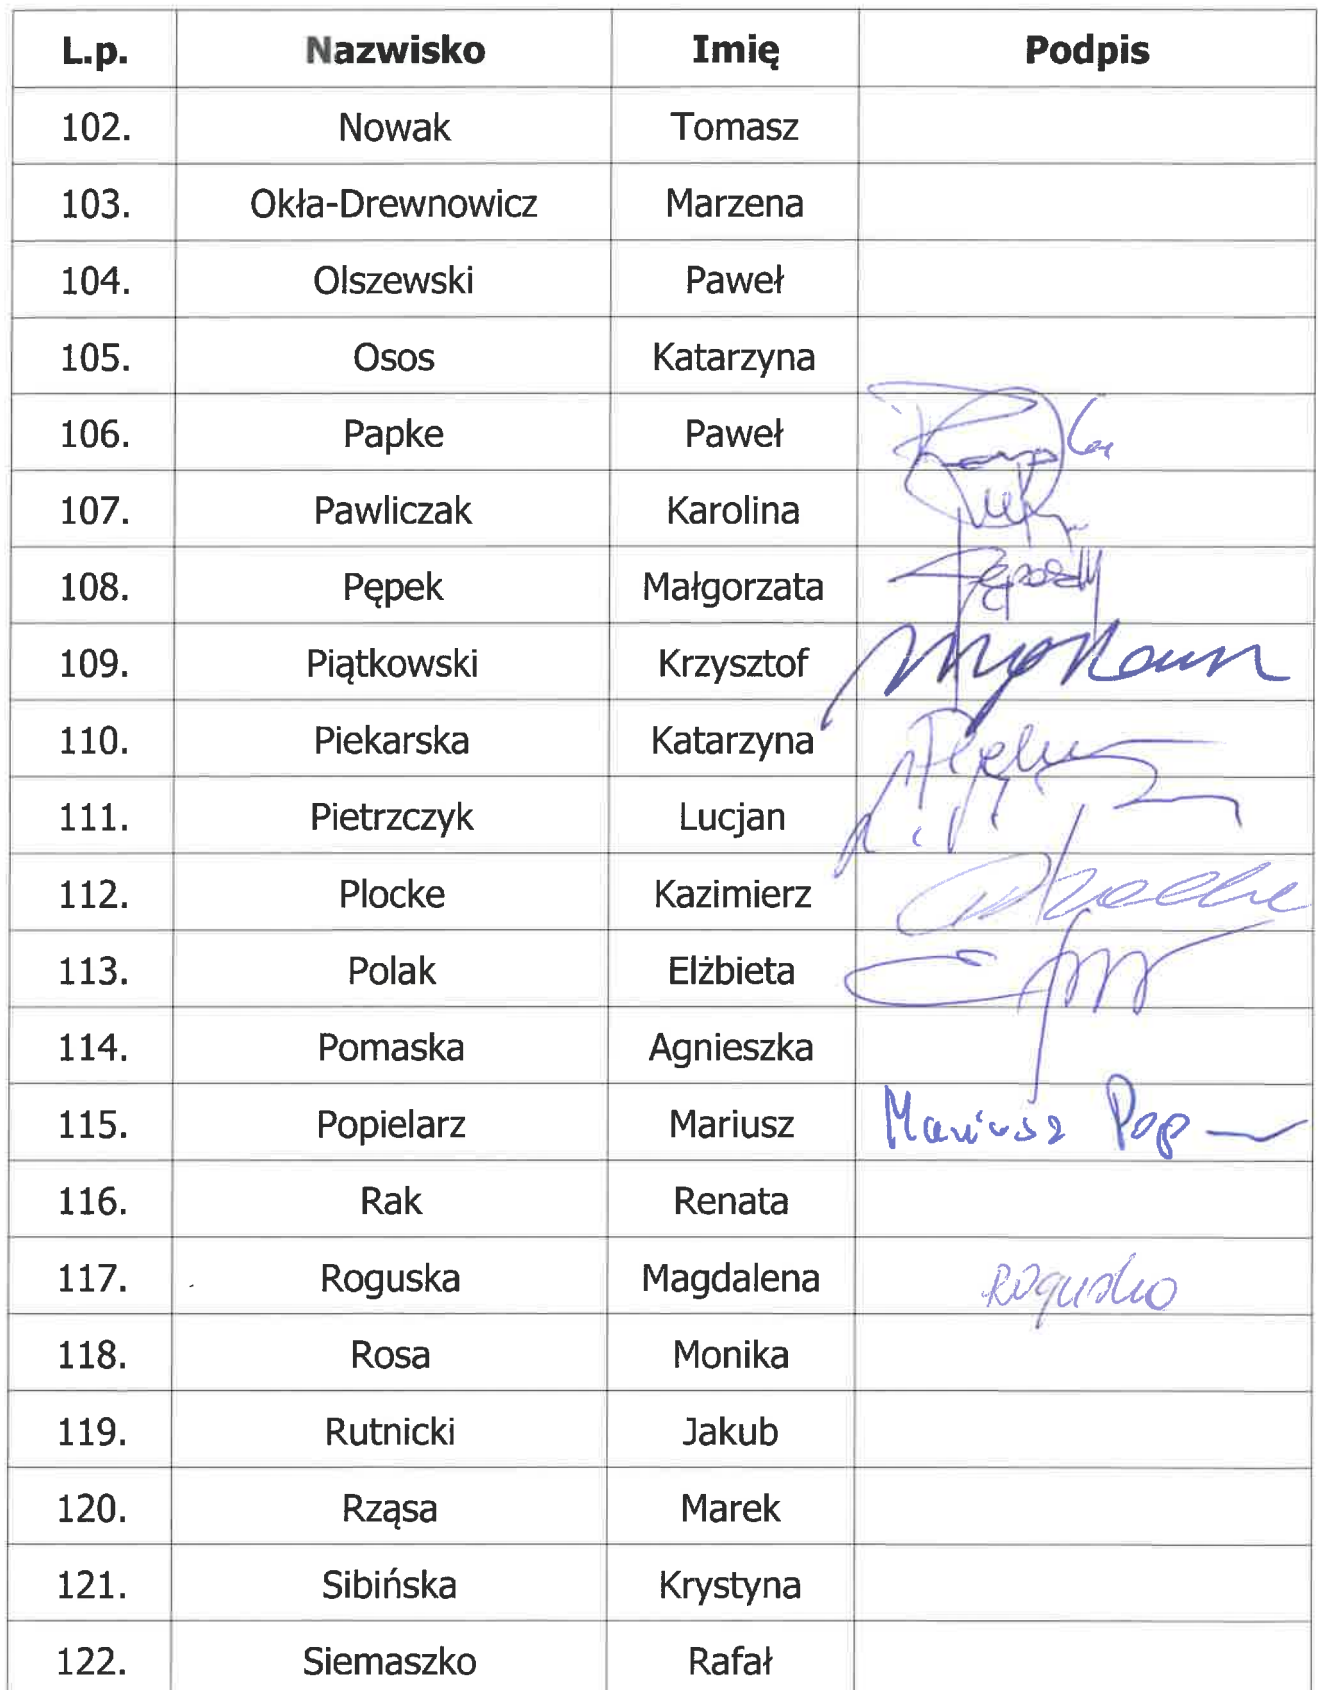 L.p. Nazwisko Imię Podpis
102. Nowak Tomasz
103. Okła-Drewnowicz Marzena
104. Olszewski Paweł
105. Osos Katarzyna
106. Papke Paweł
107. Pawliczak Karolina
108. Pępek Małgorzata
109. Piątkowski Krzysztof
110. Piekarska Katarzyna
111. Pietrzczyk Lucjan
112. Plocke Kazimierz
113. Polak Elżbieta
114. Pomaska Agnieszka
115. Popielarz Mariusz Mariusz Pop
116. Rak Renata
117. Roguska Magdalena Roguska
118. Rosa Monika
119. Rutnicki Jakub
120. Rząsa Marek
121. Sibińska Krystyna
122. Siemaszko Rafał